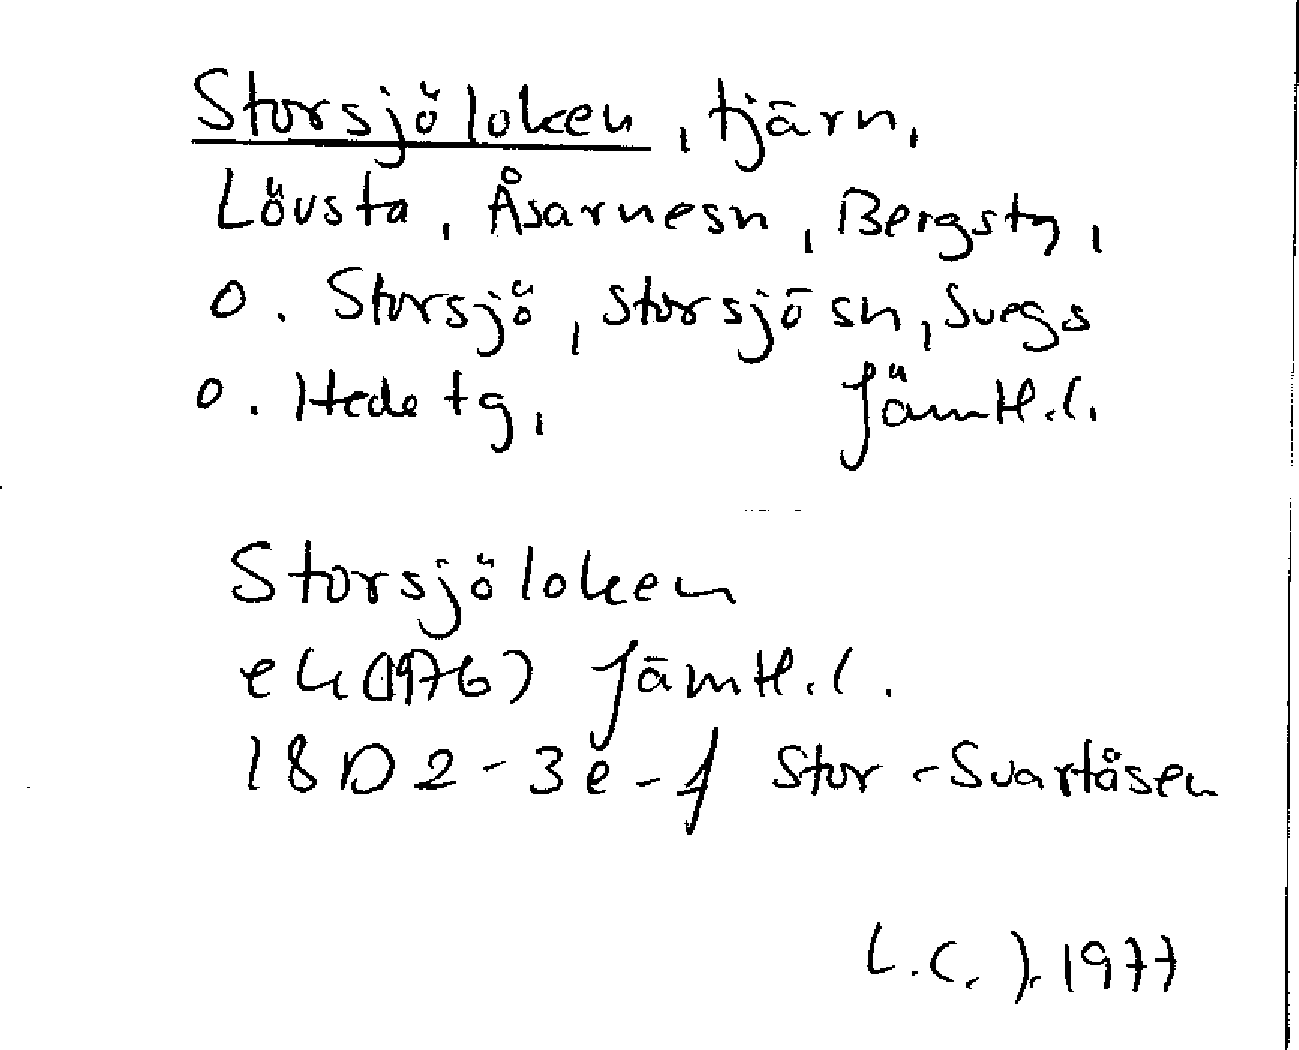 Storsjöloken, tjärn,
Lövsta, Åsarnesn, Bergstg,
o. Storsjö, Storsjösn, Svegs
o. Hede tg, Jämtl.l.
Storsjöloken
ek (1976) Jämtl.l.
18D 2-3 e-f Stor-Svartåsen
L.C. J. 1977